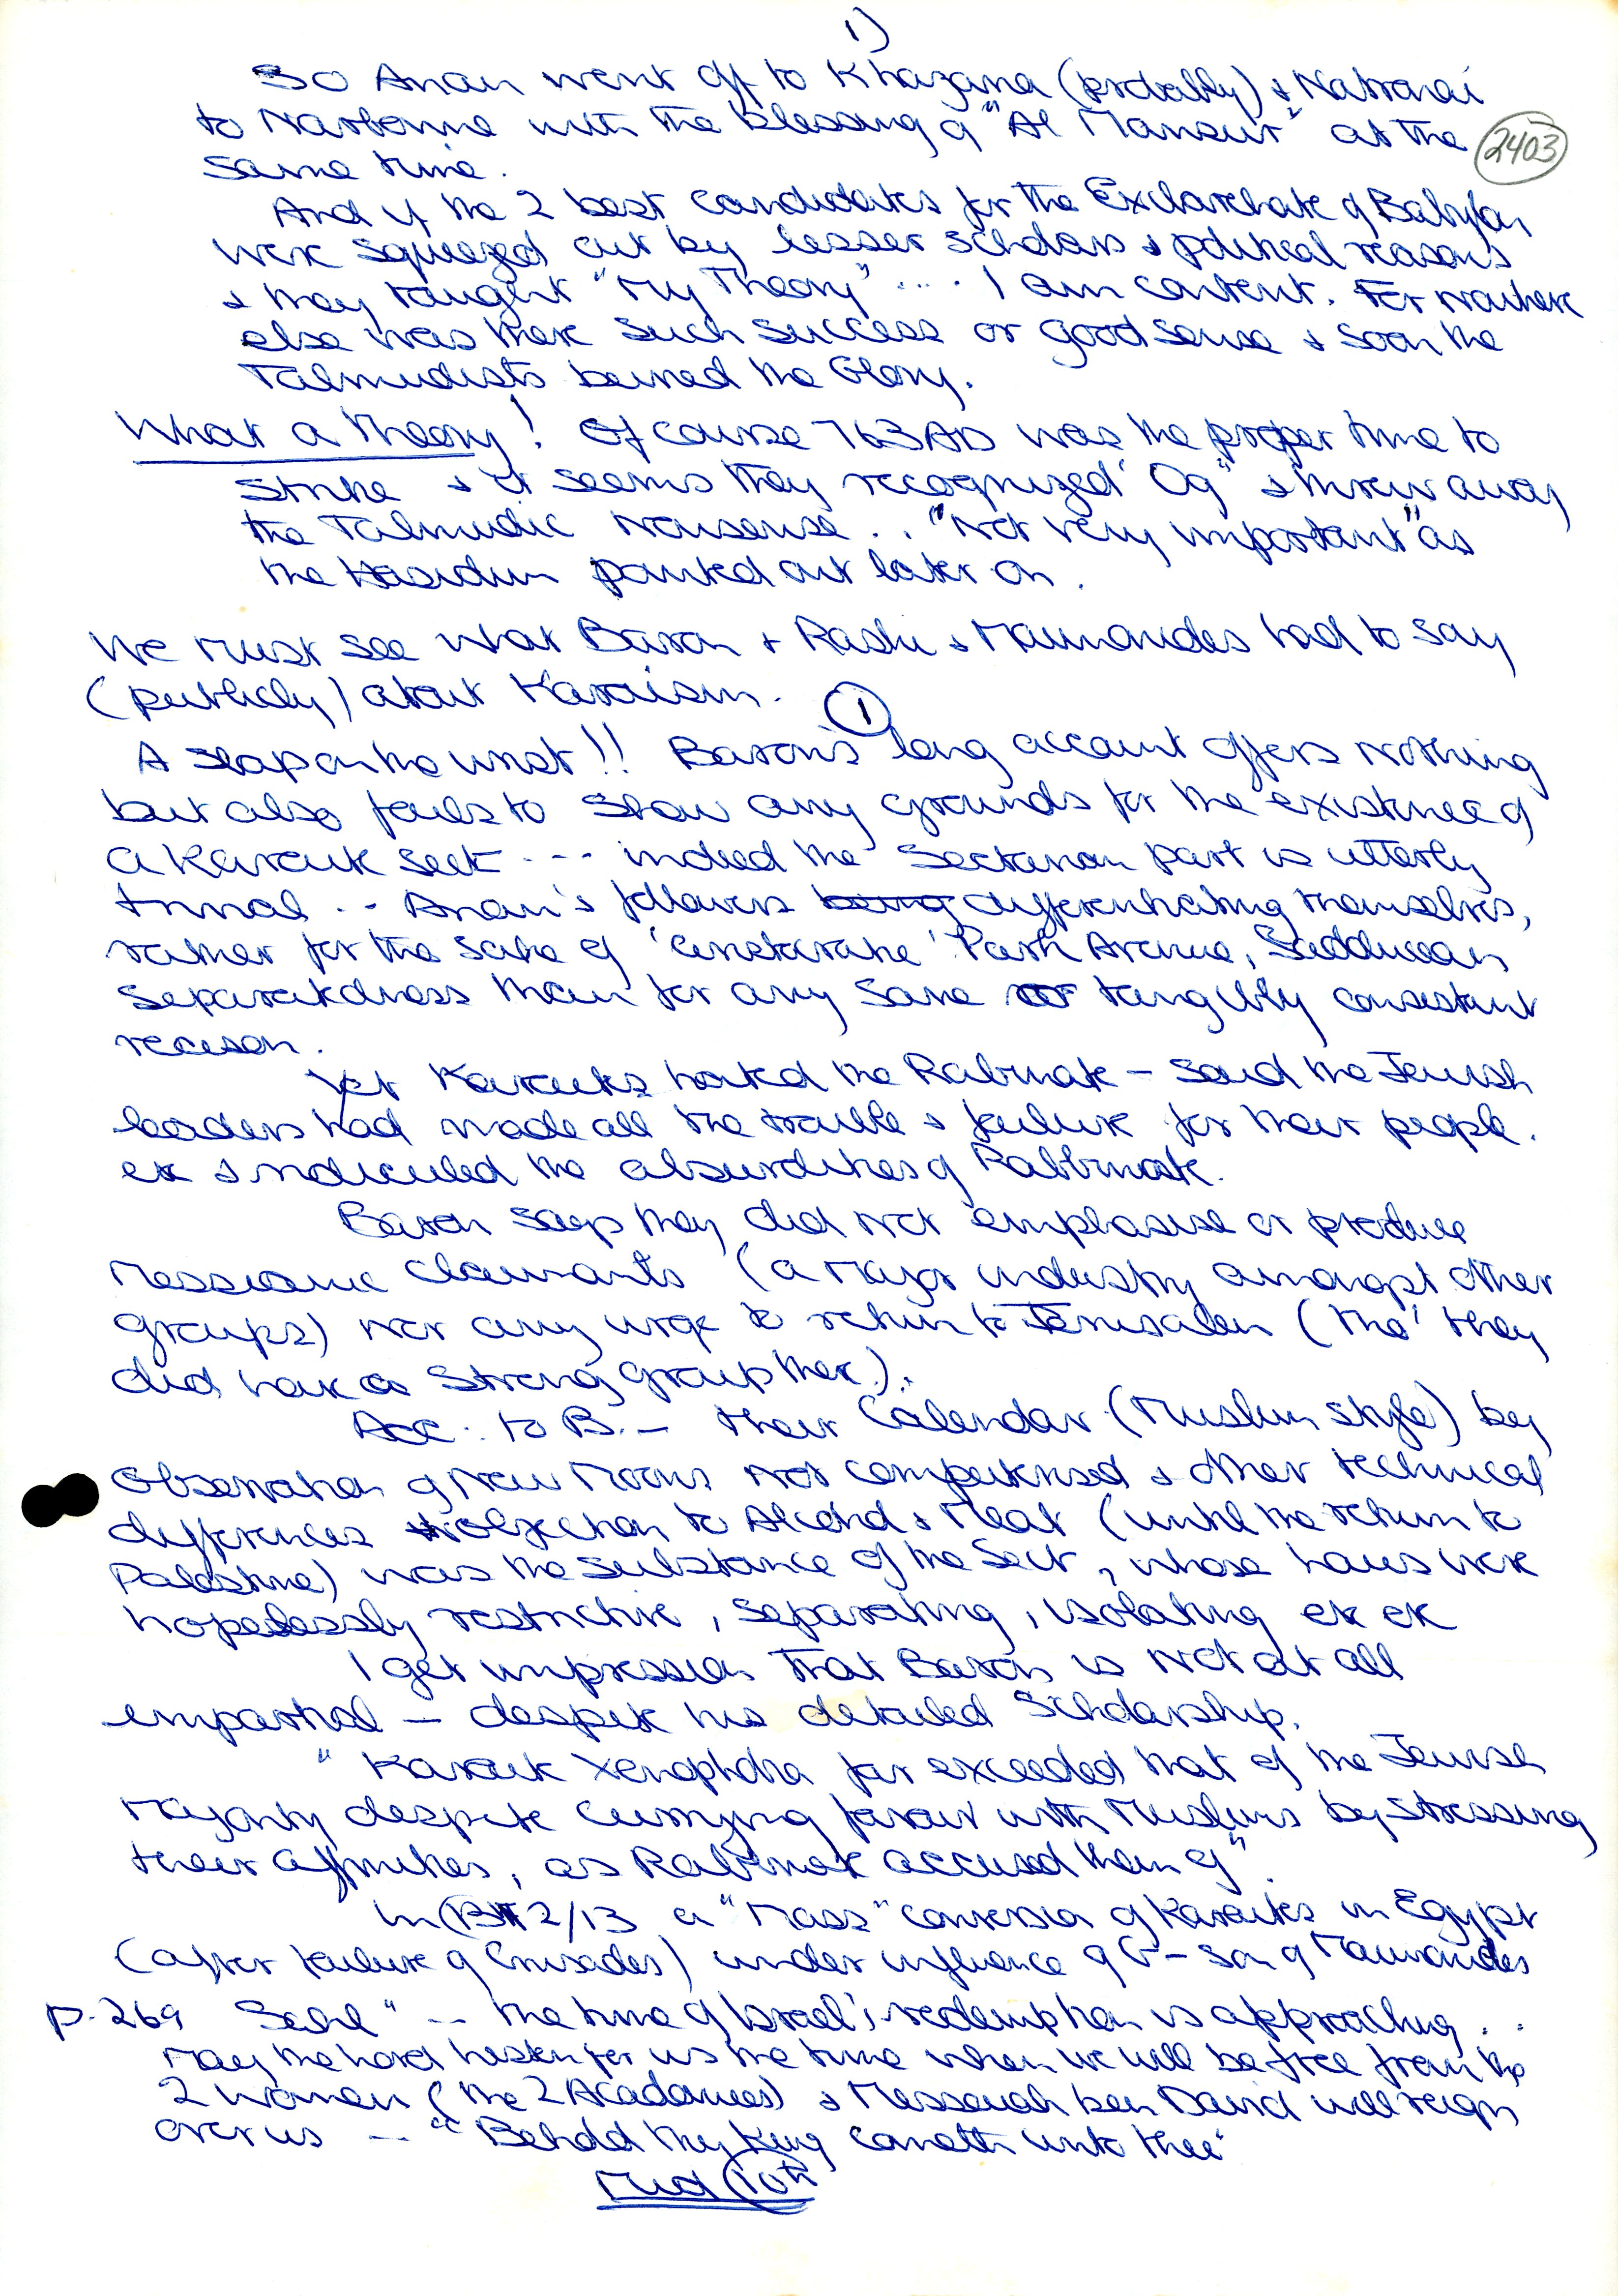 1)
So Anan went off to Khazaria (probably) & Natronai
to Narbonne with the blessing of "Al Mansur" at the
2403
same time.
And if the 2 best candidates for the Exilarchate of Babylon
were squeezed out by lesser scholars & political reasons
& they taught "My Theory" .... I am content. For nowhere
else was there such success or good sense & soon the
Talmudists buried the Glory.
What a theory! Of course 763AD was the proper time to
strike & it seems they recognized "Og" & threw away
the Talmudic Nonsense .. "Not very important" as
the Hasidim pointed out later on.
We must see what Baron & Rashi & Maimonides had to say
(publicly) about Karaism.
1
A slap on the wrist!! Baron's long account offers nothing
but also fails to show any grounds for the existence of
a Karaite sect --- indeed the Sectarian part is utterly
trivial .. Anan's followers being differentiating themselves,
rather for the sake of 'aristocratic' Park Avenue, Sadducean
separatedness than for any sane or tangibly consistant
reason.
Yet Karaites hated the Rabbinate - said the Jewish
leaders had made all the trouble & failure for their people.
etc & ridiculed the absurdities of Rabbinate.
Baron says they did not emphasise or produce
Messianic claimants (a major industry amongst other
groups) nor any urge to return to Jerusalem (tho' they
did have a strong group there).
Acc: to B. - their Calendar (Muslim style) by
Observation of New Moons not computerised & other technical
differences objection to Alcohol & Meat (until the return to
Palestine) was the substance of the Sect, whose laws were
hopelessly restrictive, separating, isolating etc etc
I get impression that Baron is not at all
impartial - despite his detailed Scholarship.
"Karaite Xenophobia far exceeded that of the Jewish
Majority despite currying favour with Muslims by stressing
their affinities, as Rabbinate accused them of".
In 12/13 a "Mass" conversion of Karaites in Egypt
(after failure of Crusades) under influence of G-son of Maimonides
p. 269 Sahl "-- the time of Israel's redemption is approaching ..
May the Lord hasten for us the time when we will be free from the
2 women (the 2 Academies) & Messiah ben David will reign
over us -- "Behold thy King cometh unto thee"
Mid 10th